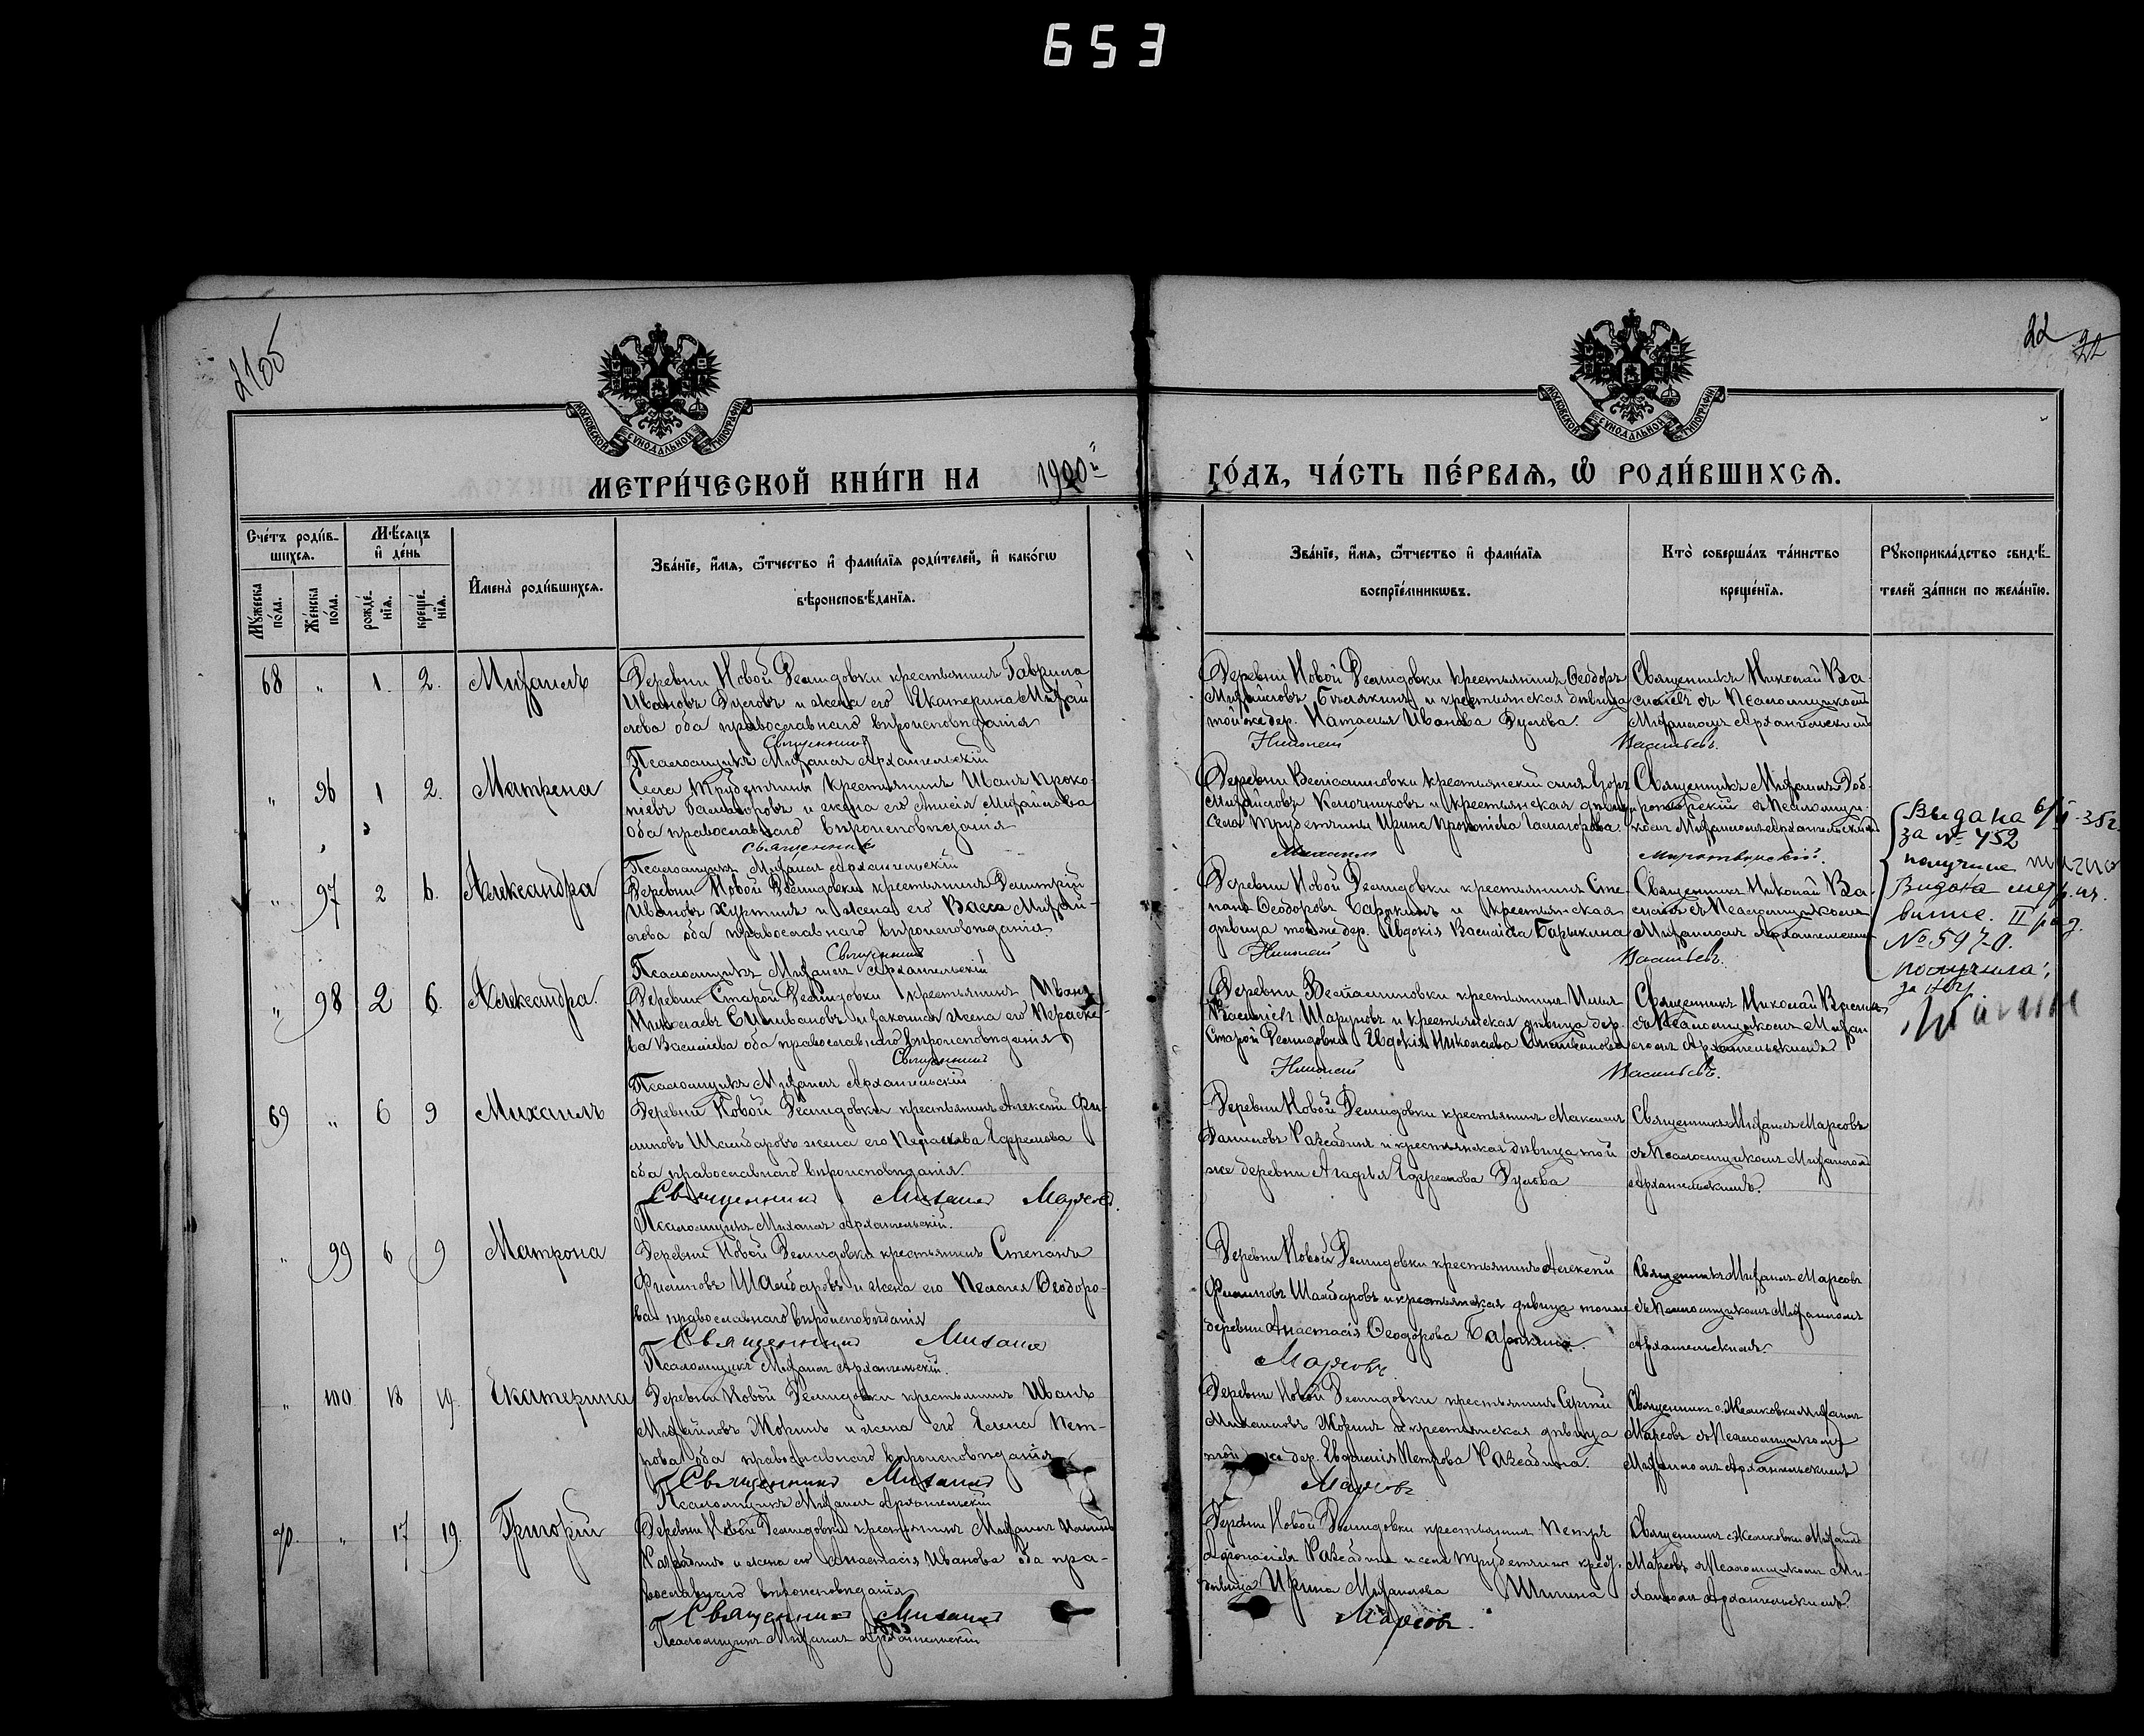 653
2105
22
22
МОСКОВСКОЙ СѴНОДАЛЬНОЙ ТИПОГРАФІИ
МОСКОВСКОЙ СѴНОДАЛЬНОЙ ТИПОГРАФІИ
МЕТРИ́ЧЕСКОЙ КНИ́ГИ НА 1900й
ГО́ДЪ, ЧА́СТЬ ПЕ́РВАѦ, Ѡ҆ РОДИ́ВШИХСѦ.
Сче́тъ роди́в-
шихсѧ.
Мꙋ́жеска по́ла.
Же́нска по́ла.
Мѣ́сѧцъ и҆ де́нь
рожде́-нїѧ.
креще́-нїѧ.
И҆мена̀ роди́вшихсѧ.
Зва́нїе, и҆́мѧ, ѻ҆́тчество и҆ фами́лїѧ роди́телей, и҆ како́гѡ
вѣроисповѣ́данїѧ.
Зва́нїе, и҆́мѧ, ѻ҆́тчество и҆ фами́лїѧ
воспрїе́мникѡвъ.
Кто̀ соверша́лъ та́инство
креще́нїѧ.
Рꙋкоприкла́дство свидѣ́-
телей за́писи по жела́нїю.
68 " 1. 2. Михаилъ
Деревни Новой Демидовки крестьянинъ Гаврила
Ивановъ Дусовъ и жена его Екатерина Михай
лова оба православнаго вѣроисповѣданія
Священникъ
Псаломщикъ Михаилъ Архангельскій
Деревни Новой Демидовки крестьянинъ Ѳеодоръ
Михайловъ и крестьянская дѣвица
той же дер. Наталья Иванова Дусова.
Николай Васильевъ.
Священникъ Николай Ва-
сильевъ съ Псаломщикомъ
Михаиломъ Архангельскимъ
" 96 1 2. Матрена
Села Трубетчины крестьянинъ Иванъ Проко-
піевъ и жена его Анисія Михайлова
оба православнаго вѣроисповѣданія
Священникъ
Псаломщикъ Михаилъ Архангельскій
Деревни крестьянскій сынъ
Михайловъ Ключниковъ и крестьянская дѣвица
села Трубетчины Ирина Прокопіева
Михаилъ
Священникъ Михаилъ
съ Псаломщи-
комъ Михаиломъ Архангельскимъ
" 97 2 6. Александра
Деревни Новой Демидовки крестьянинъ Димитрій
Ивановъ Хуртинъ и жена его Васса Михай-
лова оба православнаго вѣроисповѣданія
Священникъ
Псаломщикъ Михаилъ Архангельскій
Деревни Новой Демидовки крестьянинъ Сте-
панъ Ѳеодоровъ Барыкинъ и крестьянская
дѣвица тойже дер. Евдокія Василіева Барыкина
Николай Васильевъ.
Священникъ Николай Ва-
сильевъ съ Псаломщикомъ
Михаиломъ Архангельскимъ
Выдана
за № 452
получила
Выдана
№ 597-0.
получила
" 98 2 6. Александра.
Деревни Старой Демидовки крестьянинъ Иванъ
Николаевъ Селивановъ и законная жена его Параске-
ва Василіева оба православнаго вѣроисповѣданія
Священникъ
Псаломщикъ Михаилъ Архангельскій
Деревни крестьянинъ Илья
и крестьянская дѣвица дер.
Старой Демидовки Евдокія Николаева Селиванова
Николай Васильевъ.
Священникъ Николай Васильевъ
съ Псаломщикомъ Михаи
ломъ Архангельскимъ
69 " 6 9 Михаилъ
Деревни Новой Демидовки крестьянинъ Алексѣй Фи-
липовъ Шандаровъ жена его Параскева Ефремова
оба православнаго вѣроисповѣданія
Священникъ Михаилъ Марсовъ.
Псаломщикъ Михаилъ Архангельскій.
Деревни Новой Демидовки крестьянинъ Максимъ
и крестьянская дѣвица той
же деревни Агафья Ефремова Дусова
Священникъ Михаилъ Марсовъ
съ Псаломщикомъ Михаиломъ
Архангельскимъ.
" 99 6 9 Матрона
Деревни Новой Демидовки крестьянинъ Степанъ
Филиповъ Шандаровъ и жена его Пелагея Ѳеодоро-
ва православнаго вѣроисповѣданія
Священникъ Михаилъ
Псаломщикъ Михаилъ Архангельскій.
Деревни Новой Демидовки крестьянинъ Алексѣй
Филиповъ Шандаровъ и крестьянская дѣвица тойже
деревни Анастасія Ѳеодорова Барыкина.
Марсовъ
Священникъ Михаилъ Марсовъ
съ Псаломщикомъ Михаиломъ
Архангельскимъ.
" 100 18 19. Екатерина
Деревни Новой Демидовки крестьянинъ Иванъ
Михайловъ Жоринъ и жена его Елена Пет-
рова оба православнаго вѣроисповѣданія
Священникъ Михаилъ
Псаломщикъ Михаилъ Архангельскій
Деревни Новой Демидовки крестьянинъ Сергѣй
Михаиловъ Жоринъ и крестьянская дѣвица
той же дер. Петрова
Марсовъ
Священникъ Михаилъ
Марсовъ съ Псаломщикомъ
Михаиломъ Архангельскимъ
70. " 17 19. Григорій
Деревни Новой Демидовки крестьянинъ Михаилъ
и жена его Анастасія Иванова оба пра-
вославнаго вѣроисповѣданія
Священникъ Михаилъ
Псаломщикъ Михаилъ Архангельскій
Деревни Новой Демидовки крестьянинъ Петръ
и села Трубетчины крест.
дѣвица Ирина Михаилова Шинина
Марсовъ.
Священникъ Михаилъ
Марсовъ съ Псаломщикомъ Ми-
хаиломъ Архангельскимъ